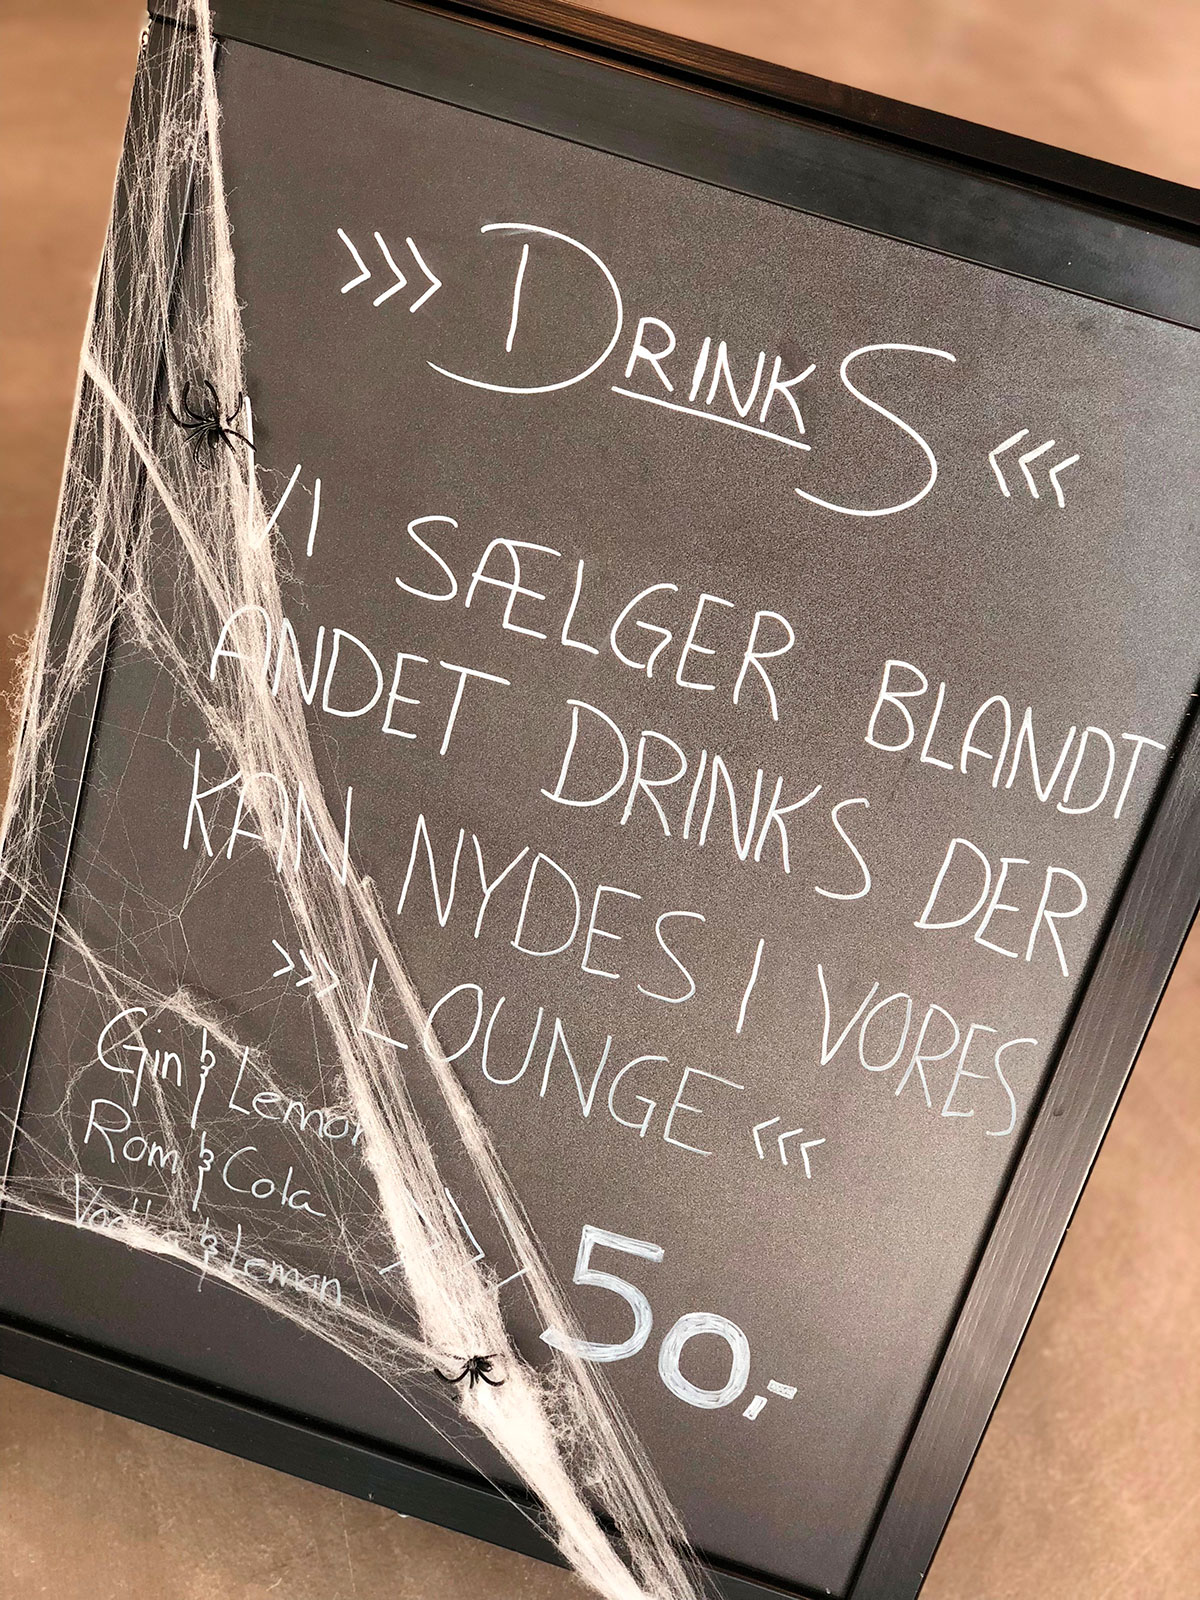 >>> DRINKS <<<
VI SÆLGER BLANDT
ANDET DRINKS DER
KAN NYDES I VORES
>>> LOUNGE <<<
Gin & Lemon
Rom & Cola
Vodka & Lemon
50,-